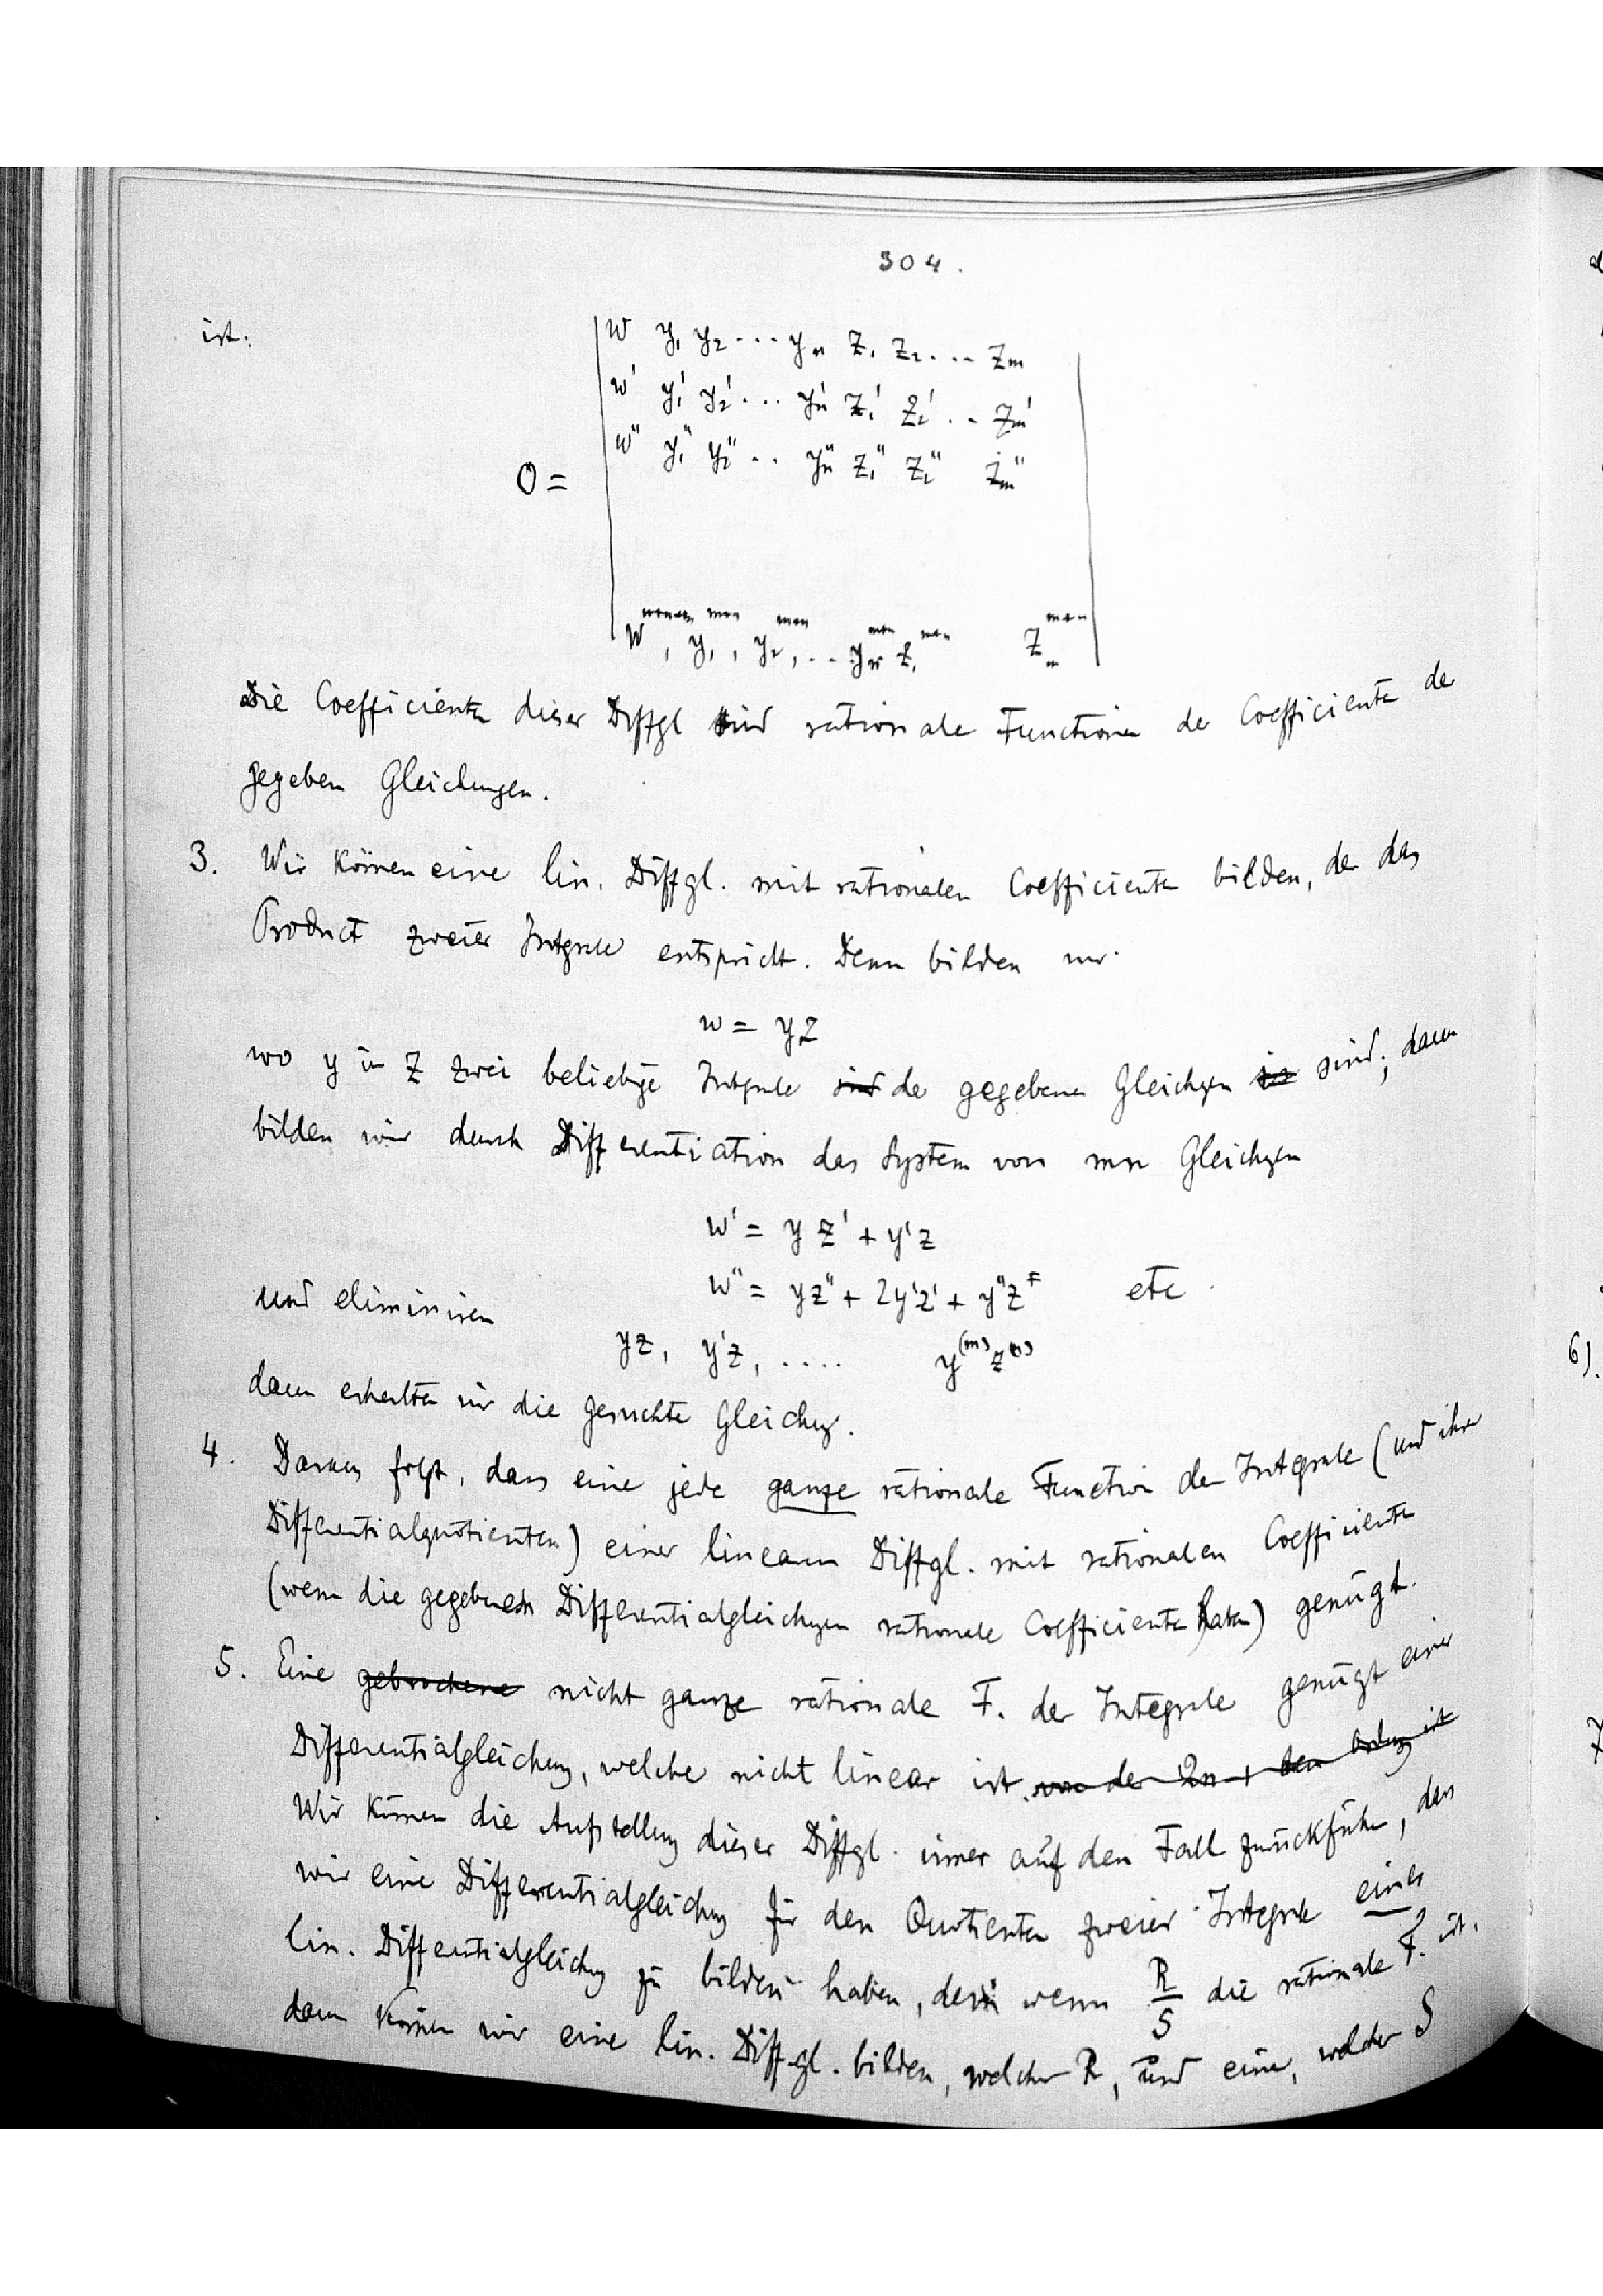 304.
ist:
w y₁ y₂ ... yₙ z₁ z₂ ... zₘ
w' y₁' y₂' ... yₙ' z₁' z₂' .. zₘ'
w'' y₁'' y₂'' .. yₙ'' z₁'' z₂'' zₘ''
0 =
w , y₁ , y₂ , .. yₙ z₁ zₘ
Die Coefficienten dieser Diffgl sind rationale Functionen der Coefficienten der
gegeben Gleichungen.
3. Wir können eine lin. Diffgl. mit rationalen Coefficienten bilden, der das
Product zweier Integrale entspricht. Denn bilden wir
w = yz
wo y u z zwei beliebige Integrale sind der gegebenen Gleichgen sind; dann
bilden wir durch Differentiation das System von mn Gleichgen
w' = y z' + y'z
w'' = yz'' + 2y'z' + y''z etc.
und eliminiren
yz, y'z, .... y⁽ᵐ⁾z⁽ⁿ⁾
dann erhalten wir die gesuchte Gleichung.
4. Daraus folgt, dass eine jede ganze rationale Function der Integrale (und ihrer
Differentialquotienten) einer linearen Diffgl. mit rationalen Coefficienten
(wenn die gegebenen Differentialgleichgen rationale Coefficienten haben) genügt.
5. Eine gebrochene nicht ganze rationale F. der Integrale genügt einer
Differentialgleichung, welche nicht linear ist. von der 2n+1 ten Ordnung ist
Wir können die Aufstellung dieser Diffgl. immer auf den Fall zurückführen, dass
wir eine Differentialgleichung für den Quotienten zweier Integrale einer
lin. Differentialgleichung zu bilden haben, denn wenn R/S die rationale F. ist,
dann können wir eine lin. Diffgl. bilden, welcher R, und eine, welcher S